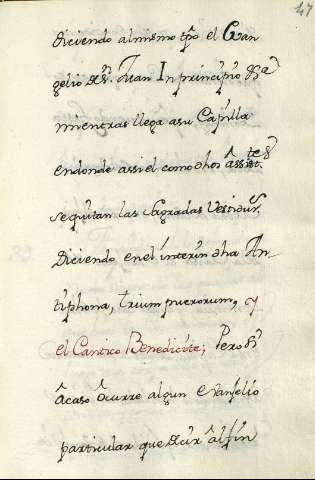 47
diciendo al mısmo tpo el Evan
gelio de Sn. Juan In principio &a
mientras llega a su Capilla
en donde assi el como dhos Assistes
se quitan las Sagradas Vestidurs
Diciendo en el interin dha An-
tiphona, trium puerorum, y
el Cantico Benedicite; Pero si
Acaso Ocurre algun Evanjelio
particular que decir al fin